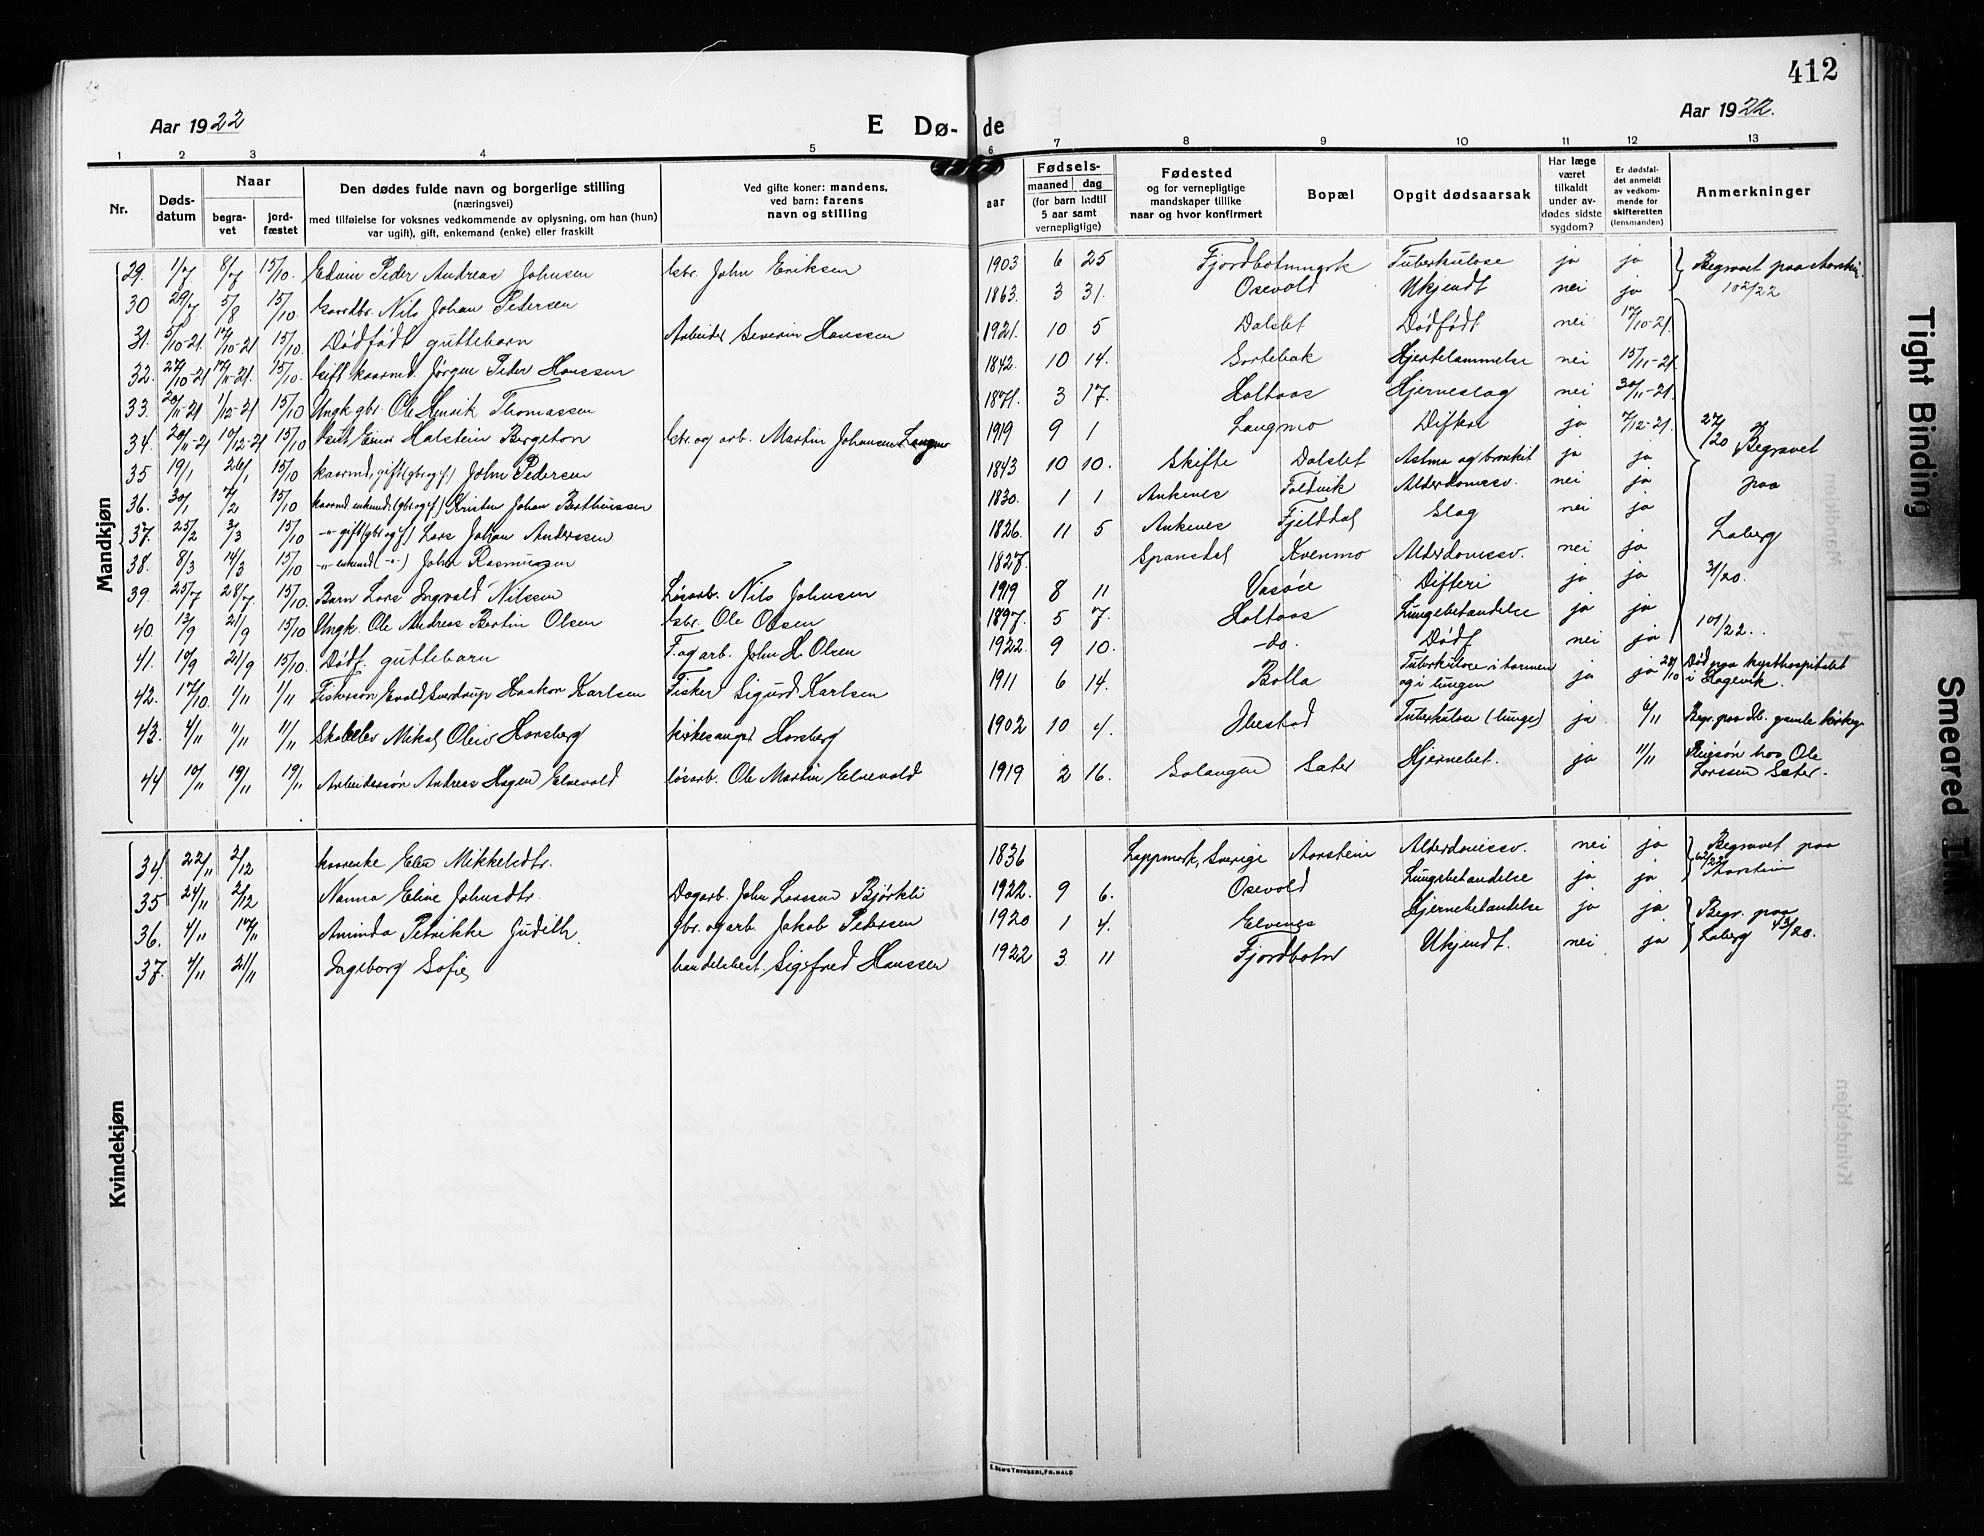 412
Aar 1922
E Dø-
de
Aar 1922.
1 2 3 4 5 6 7 8 9 10 11 12 13
Nr.
Døds-
datum
Naar
begra-
vet
jord-
fæstet
Den dødes fulde navn og borgerlige stilling
(næringsvei)
med tilføielse for voksnes vedkommende av oplysning, om han (hun)
var ugift), gift, enkemand (enke) eller fraskilt
Ved gifte koner: mandens,
ved barn: farens
navn og stilling
Fødsels-
aar
maaned dag
(for barn indtil
5 aar samt
vernepligtige)
Fødested
og for vernepligtige
mandskaper tillike
naar og hvor konfirmert
Bopæl
Opgit dødsaarsak
Har læge
været
tilkaldt
under av-
dødes sidste
sygdom?
Er dødsfal-
det anmeldt
av vedkom-
mende for
skifteretten
(lensmanden)
Anmerkninger
Mandkjøn
29. 1/7 8/7 15/10. Edvin Peder Andreas Johnsen Gbr. John Eriksen 1903 6 25 Fjordbotnmark Tuberkulose ja ja Begravet paa Aarstein 102/22
30 29/7 5/8 15/10. Gaardbr. Nils Johan Pedersen 1863. 3 31. Osevold Ukjendt nei ja
31. 5/10-21 17/10-21 15/10. Dødfødt guttebarn Arbeider Severin Hanssen 1921. 10 5 Dalslet Dødfødt nei 17/10-21.
32. 27/10-21 17/11-21. 15/10. Gift kaarmd. Jørgen Peder Hanssen 1842. 10 14. Sortebak Hjertelammelse nei 15/11-21.
33. 20/11-21 1/12-21 15/10 Ungk. gbr. Ole Henrik Thomassen 1871. 3 17. Holtaas Hjerneslag nei 30/11-21.
34. 20/11-21 10/12-21 15/10 Gut Einar Halstein Bergeton Gbr. og arb. Martin Johansen Langmo 1919 9 1 Langmo Difteri ja 7/12-21. 27/20 Begravet
35 19/1 26/1 15/10 kaarmd, gift (gbr og f) John Pedersen 1843 10 10. Skifte Dalslet Astma og bronkit ja ja paa
36. 30/1 7/2 15/10 kaarmd enkemd (gbr og f) Kristen Johan Bertheussen 1830. 1 1 Ankenes Foldvik Alderdomssv. nei ja
37. 25/2 3/3 15/10 -"- gift (gbr og f) Lars Johan Anderssen 1826. 11 5 Ankenes Fjelddal Slag nei ja Laberg
38. 8/3 14/3 15/10 -"- enkemd (-"-) John Rasmussen 1827. Spansdal Kvenmo Alderdomssv. nei ja 31/20.
39. 25/7 28/7. 15/10. Barn Lars Ingvald Nilssen Løsarb. Nils Johnsen 1919 8 11 Difteri ja ja
40. 13/9 21/9 15/10 Ungk. Ole Andreas Bertin Olsen Gbr. Ole Olsen 1897. 5 7. Holtaas Lungebetændelse ja ja 101/22.
41. 10/9 21/9 15/10. Dødf. guttebarn F. og arb. John H. Olsen 1922. 9 10. -do. Dødf nei ja
42. 17/10. 1/11 1/11 Fiskersøn Evald Sverdrup Haakon Karlsen Fisker Sigurd Karlsen 1911 6 14. Bolla Tuberkulose i tarmen og i lungen ja ja 28/10 Død paa kysthospitalet i Hagevik.
43. 4/11 11/11 11/11 Skoleelev Mikal Olav Horsberg kirkesanger Horsberg 1902 10 4. Ibestad Tuberkulose (lunge) ja 6/11 Begr. paa Ib. gamle kirkeg.
44 10/11 19/11 19/11 Arbeidersøn Andreas Hagen Elvevold løsarb. Ole Martin Elvevold 1919 2 16. Salangen Sæter Hjernebet. ja 11/11 Pleiesøn hos Ole Larssen Sæter.
Kvindekjøn
34. 22/11 2/12 kaarenke Elen Mikkelsdtr. 1836 Lappmark, Sverige Aarstein Alderdomssv. nei ja Begravet paa 102/22 Aarstein
35 24/11 2/12 Nanna Eline Johnsdtr. Dagarb. John Larssen Bjørkli 1922. 9 6. Osevold Lungebetændelse ja ja
36. 4/11 17/11 Aminda Petrikke Judith gbr. og arb. Jakob Pedersen 1920 1 4. Elvenes Hjernebetændelse ja ja Begr. paa
37. 4/11 21/11 Ingeborg Sofie handelsbest. Sigfred Hanssen 1922 3 11 Fjordbotn Ukjendt. nei ja Laberg 43/20.
E. SEM'S TRYKKERI, FR. HALD
Tight Binding
Smeared Ink
Kvindekjøn